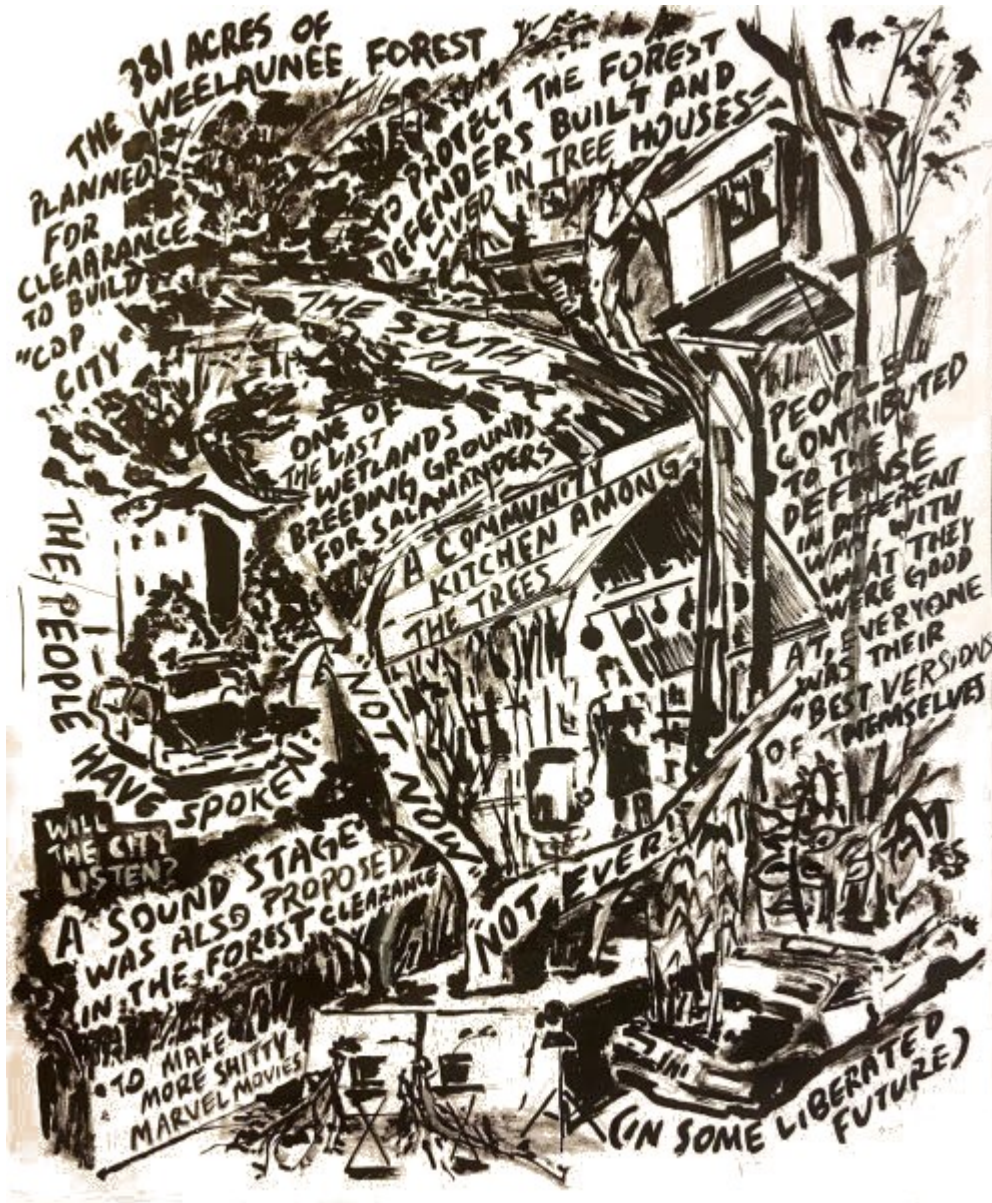 381 ACRES OF
THE WEELAUNEE FOREST
PLANNED
FOR
CLEAARANCE
TO BUILD
"COP
CITY"
TO PROTECT THE FOREST
DEFENDERS BUILT AND
LIVED IN TREE HOUSES
THE SOUTH
RIVER
ONE OF
THE LAST
WETLANDS
BREEDING GROUNDS
FOR SALAMANDERS
A COMMUNITY
KITCHEN AMONG
THE TREES
PEOPLE
CONTRIBUTED
TO THE
DEFENSE
IN DIFFERENT
WAYS, WITH
WHAT THEY
WERE GOOD
AT, EVERYONE
WAS THEIR
"BEST VERSIONS
OF THEMSELVES
THE PEOPLE
HAVE SPOKEN
WILL
THE CITY
LISTEN?
"NOT NOW"
"NOT EVER!"
A SOUND STAGE
WAS ALSO PROPOSED
IN THE FOREST CLEARANCE
TO MAKE
MORE SHITTY
MARVEL MOVIES
(IN SOME LIBERATED
FUTURE)